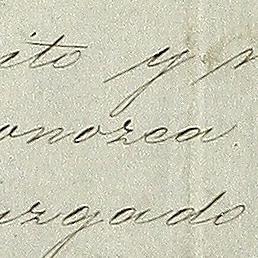 ito y n
onozca
uzgado